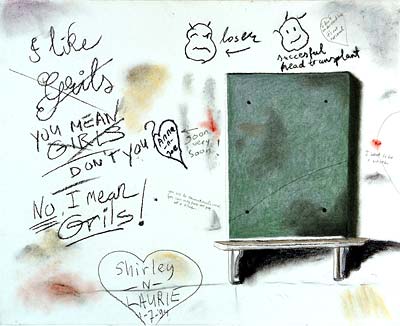 I like
Grils
YOU MEAN
GIRLS
DON'T YOU?
NO, I mean
Grils!
loser
succesful
head transplant
Anna
-n-
Joe
Soon
very
Soon!
Shirley
-N-
LAURIE
4-7-94